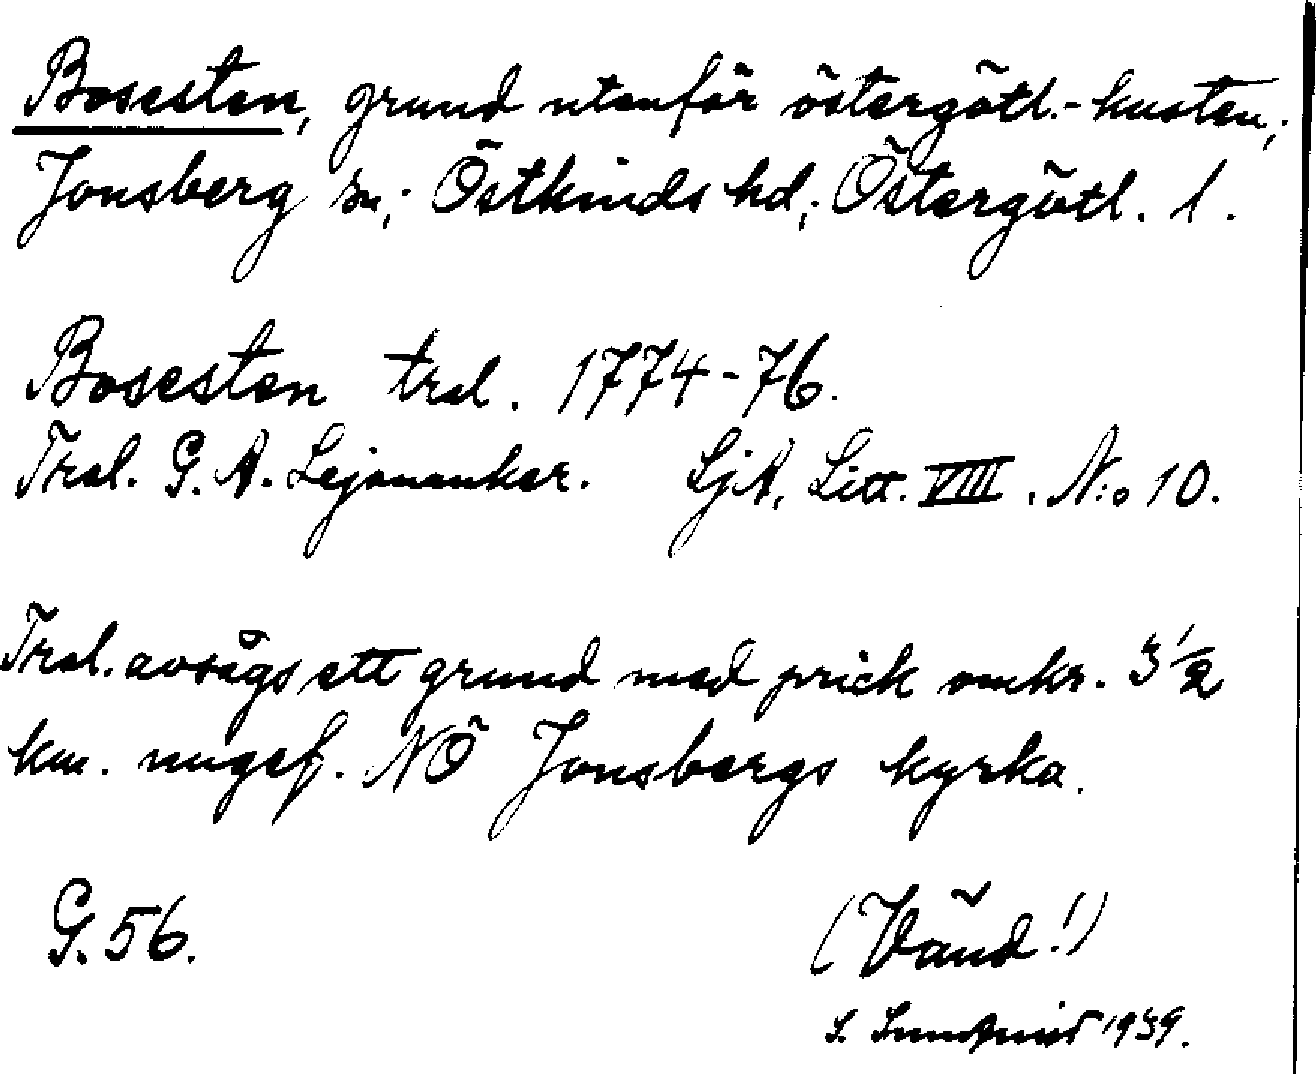 Bosesten, grund utanför östergötl.-kusten,;
Jonsberg sn,; Östkinds hd,; Östergötl. l.
Bosesten trol. 1774-76.
Trol. G. A. Lejonanker. SjA, Litt. VIII. N:o 10.
Trol. avsågs ett grund med prick omkr. 3 1/2
km. ungef. NÖ Jonsbergs kyrka.
G. 56.
(Vänd!)
S. 1939.